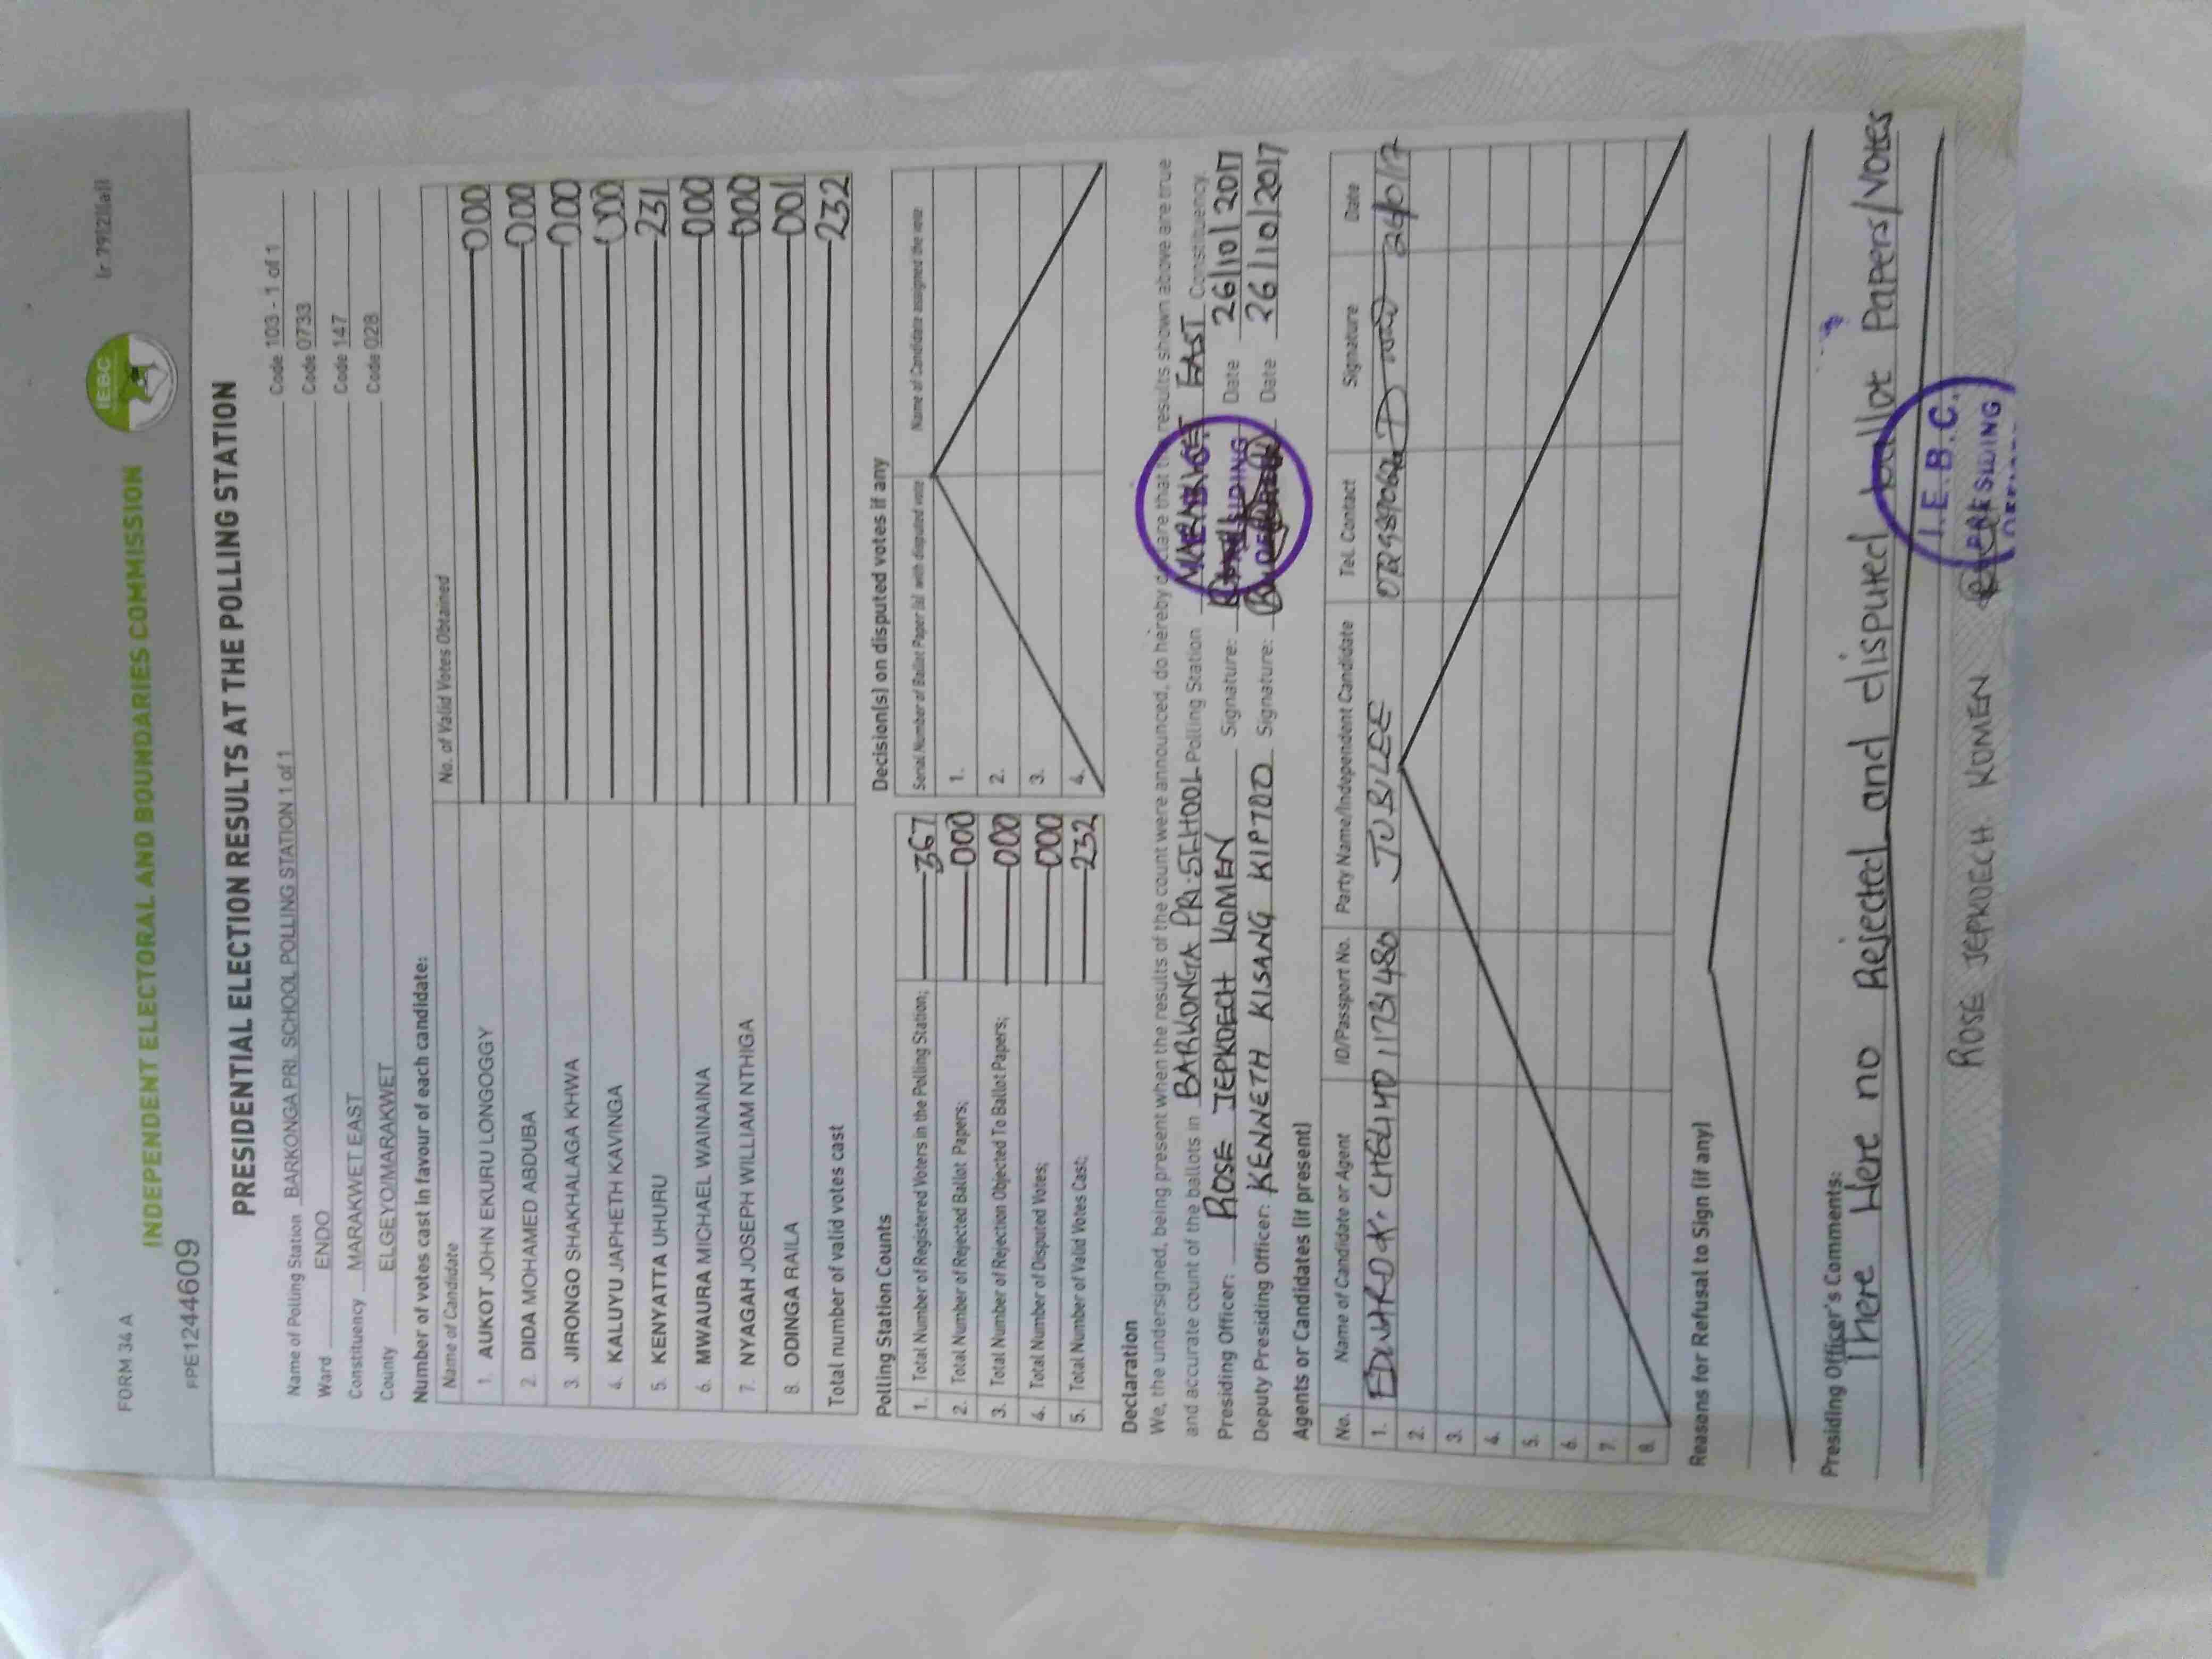 FORM 34 A
Ir 7912(1)(a)
INDEPENDENT ELECTORAL AND BOUNDARIES COMMISSION
IEBC
PPE1244609
PRESIDENTIAL ELECTION RESULTS AT THE POLLING STATION
Name of Polling Station BARKONGA PRI. SCHOOL POLLING STATION 1 of 1 Code 103 - 1 of 1
Ward ENDO Code 0733
Constituency MARAKWET EAST Code 147
County ELGEYO/MARAKWET Code 028
Number of votes cast in favour of each candidate:
Name of Candidate No. of Valid Votes Obtained
1. AUKOT JOHN EKURU LONGOGGY 000
2. DIDA MOHAMED ABDUBA 000
3. JIRONGO SHAKHALAGA KHWA 000
4. KALUYU JAPHETH KAVINGA 000
5. KENYATTA UHURU 231
6. MWAURA MICHAEL WAINAINA 000
7. NYAGAH JOSEPH WILLIAM NTHIGA 000
8. ODINGA RAILA 001
Total number of valid votes cast 232
Polling Station Counts
1. Total Number of Registered Voters in the Polling Station; 367
2. Total Number of Rejected Ballot Papers; 000
3. Total Number of Rejection Objected To Ballot Papers; 000
4. Total Number of Disputed Votes; 000
5. Total Number of Valid Votes Cast; 232
Decision(s) on disputed votes if any
Serial Number of Ballot Paper (s) with disputed vote Name of Candidate assigned the vote
1.
2.
3.
4.
Declaration
We, the undersigned, being present when the results of the count were announced, do hereby declare that the results shown above are true
and accurate count of the ballots in BARKONGA PRI. SCHOOL Polling Station MARAKWET EAST Constituency.
Presiding Officer: ROSE JEPKOECH KOMEN Signature: Date 26/10/2017
Deputy Presiding Officer: KENNETH KISANG KIPTOO Signature: Date 26/10/2017
PRESIDING
Agents or Candidates (if present)
No. Name of Candidate or Agent ID/Passport No. Party Name/Independent Candidate Tel. Contact Signature Date
1. EDWARD K. 11731480 JUBILEE 26/10/17
2.
3.
4.
5.
6.
7.
8.
Reasons for Refusal to Sign (if any)
Presiding Officer's Comments:
There Here no Rejected and disputed ballot Papers/Votes
I.E.B.C.
PRESIDING
ROSE JEPKOECH KOMEN